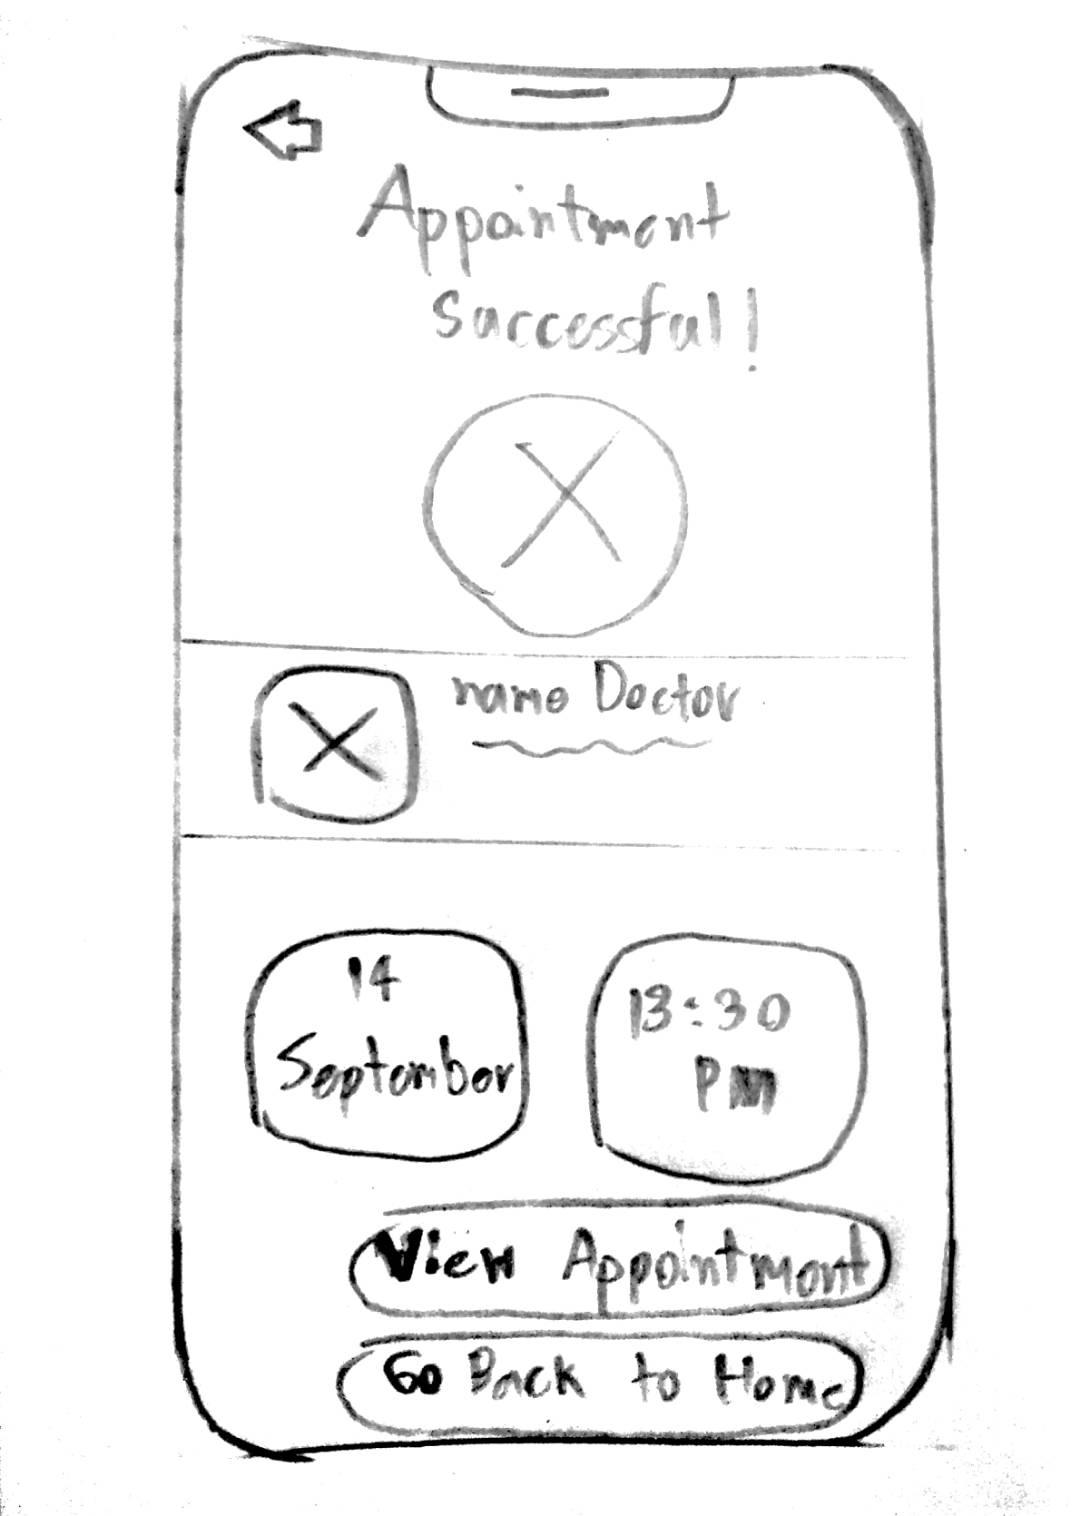 Appointment
Successful!
name Doctor
14
September
13:30
PM
View Appointment
Go Back to Home